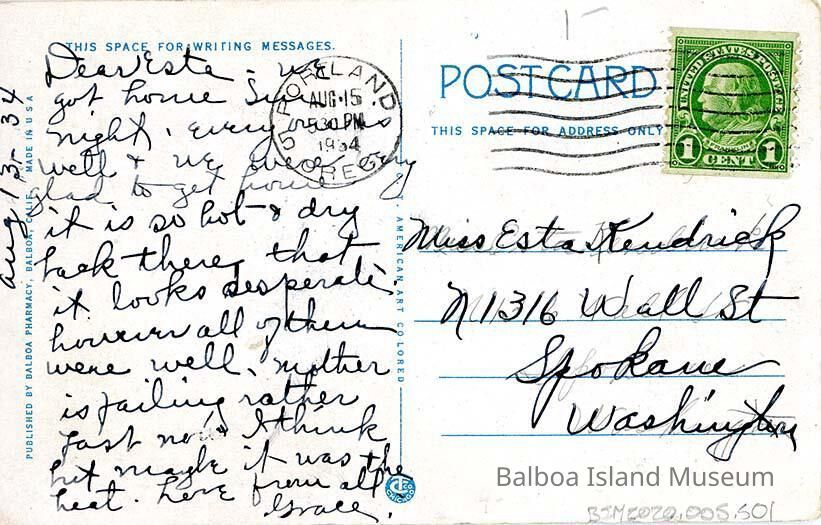 THIS SPACE FOR WRITING MESSAGES.
Dear Esta - we
got home Sun.
night. every one is
well & we were very
glad to get home
it is so hot & dry
back there that
it looks desperate.
however all of them
were well. mother
is failing rather
fast now I think
but maybe it was the
heat. Love from all
Grace.
Aug 13-34
PUBLISHED BY BALBOA PHARMACY, BALBOA, CALIF. MADE IN U S A
AMERICAN ART COLORED
PORTLAND
AUG 15
530 PM
1934
OREG
5
POST CARD
THIS SPACE FOR ADDRESS ONLY
UNITED STATES POSTAGE
FRANKLIN
1 CENT 1
Miss Esta Kendrick
N1316 Wall St
Spokane
Washington
CT CO
CHICAGO
Balboa Island Museum
BIM2020.005.501